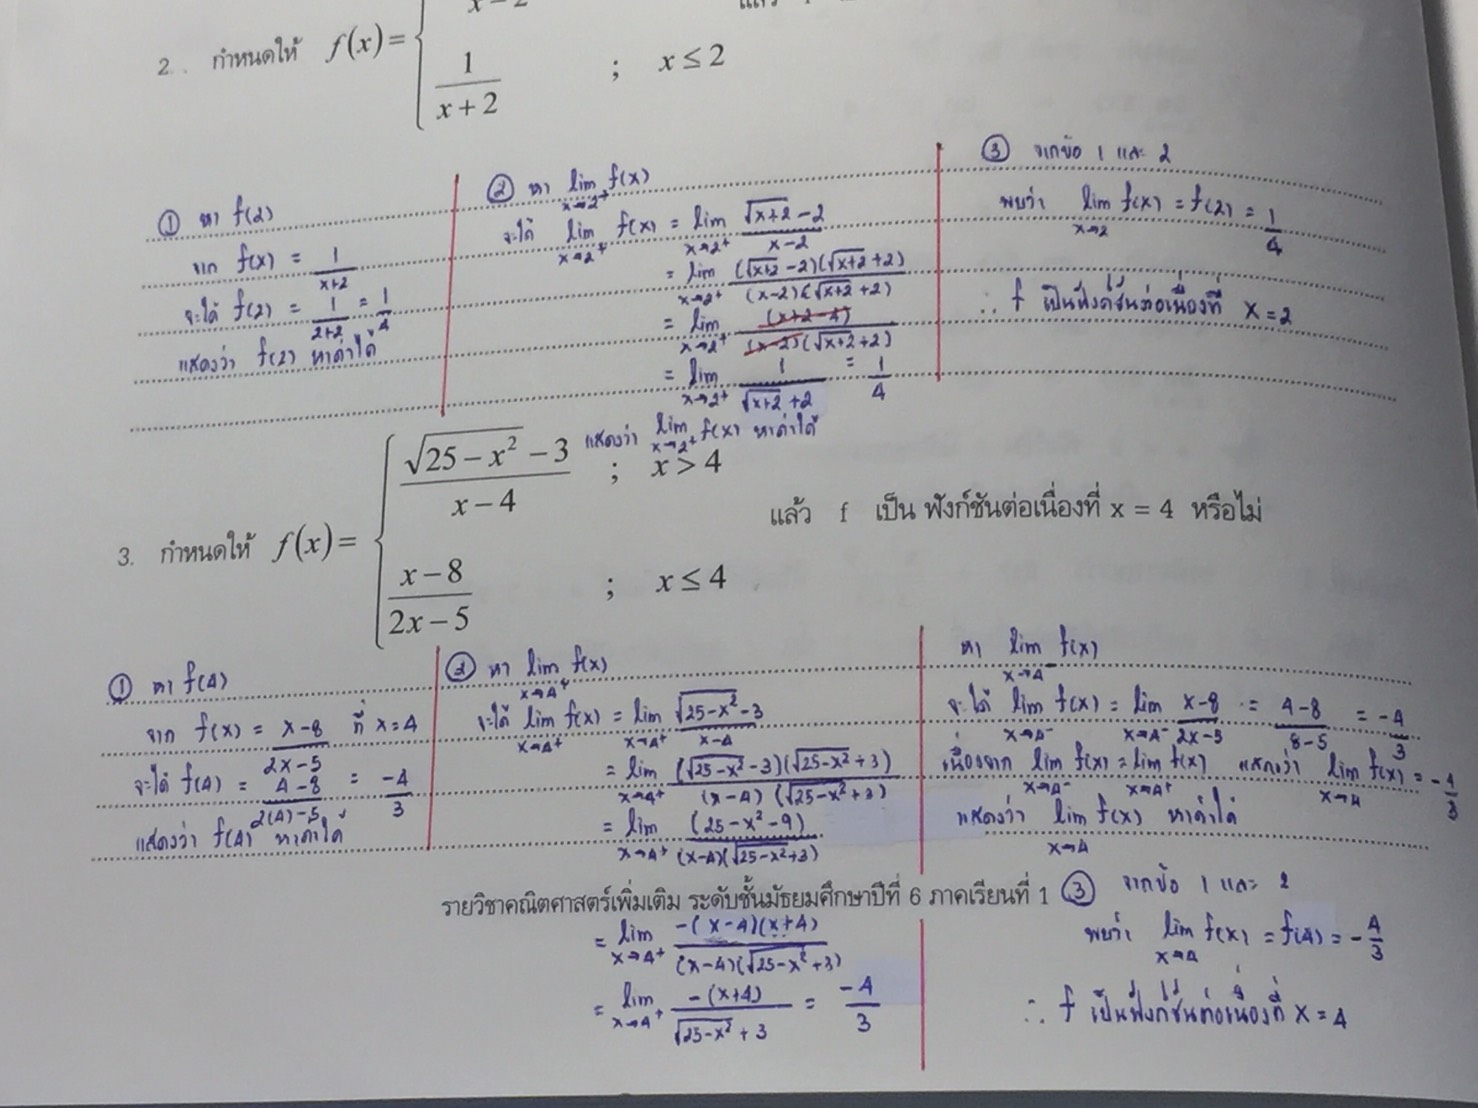 x − 2
2. กำหนดให้ f(x) = { 1/(x + 2) ; x ≤ 2
① หา f(2)
จาก f(x) = 1/(x+2)
จะได้ f(2) = 1/(2+2) = 1/4
แสดงว่า f(2) หาค่าได้
② หา lim x→2⁺ f(x)
จะได้ lim x→2⁺ f(x) = lim x→2⁺ (√(x+2) − 2)/(x−2)
= lim x→2⁺ (√(x+2) − 2)(√(x+2) + 2)/(x−2)(√(x+2) + 2)
= lim x→2⁺ (x+2−4)/(x−2)(√(x+2) + 2)
= lim x→2⁺ 1/(√(x+2) + 2) = 1/4
แสดงว่า lim x→2⁺ f(x) หาค่าได้
③ จากข้อ 1 และ 2
พบว่า lim x→2 f(x) = f(2) = 1/4
∴ f เป็นฟังก์ชันต่อเนื่องที่ x = 2
3. กำหนดให้ f(x) = { (√(25 − x²) − 3)/(x − 4) ; x > 4
(x − 8)/(2x − 5) ; x ≤ 4
แล้ว f เป็น ฟังก์ชันต่อเนื่องที่ x = 4 หรือไม่
① หา f(4)
จาก f(x) = (x−8)/(2x−5) ที่ x = 4
จะได้ f(4) = (4−8)/(2(4)−5) = −4/3
แสดงว่า f(4) หาค่าได้
② หา lim x→4⁺ f(x)
จะได้ lim x→4⁺ f(x) = lim x→4⁺ (√(25−x²) − 3)/(x−4)
= lim x→4⁺ (√(25−x²) − 3)(√(25−x²) + 3)/(x−4)(√(25−x²) + 3)
= lim x→4⁺ (25−x²−9)/(x−4)(√(25−x²) + 3)
= lim x→4⁺ −(x−4)(x+4)/(x−4)(√(25−x²) + 3)
= lim x→4⁺ −(x+4)/(√(25−x²) + 3) = −4/3
หา lim x→4⁻ f(x)
จะได้ lim x→4⁻ f(x) = lim x→4⁻ (x−8)/(2x−5) = (4−8)/(8−5) = −4/3
เนื่องจาก lim x→4⁻ f(x) = lim x→4⁺ f(x) แสดงว่า lim x→4 f(x) = −4/3
แสดงว่า lim x→4 f(x) หาค่าได้
รายวิชาคณิตศาสตร์เพิ่มเติม ระดับชั้นมัธยมศึกษาปีที่ 6 ภาคเรียนที่ 1
③ จากข้อ 1 และ 2
พบว่า lim x→4 f(x) = f(4) = −4/3
∴ f เป็นฟังก์ชันต่อเนื่องที่ x = 4